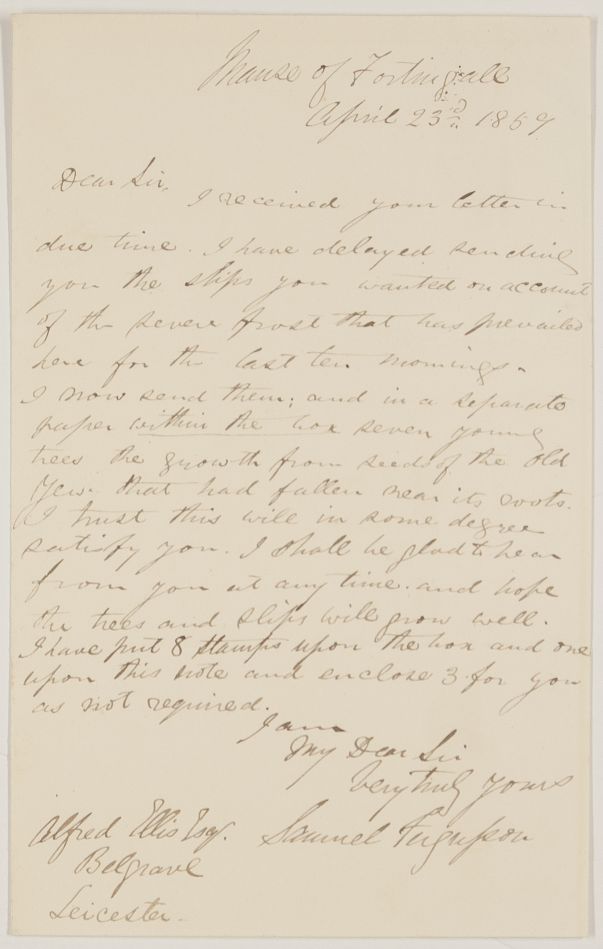 Manse of Fortingall
April 23rd 1859
Dear Sir,
I received your letter in
due time. I have delayed sending
you the slips you wanted on account
of the severe frost that has prevailed
here for the last ten mornings.
I now send them; and in a separate
paper within the box seven young
trees the growth from seeds of the old
Yew that had fallen near its roots.
I trust this will in some degree
satisfy you. I shall be glad to hear
from you at any time and hope
the trees and slips will grow well.
I have put 8 stamps upon the box and one
upon this note and enclose 3 for you
as not required.
I am
My Dear Sir
Very truly yours
Samuel Fergusson
Alfred Ellis Esqr.
Belgrave
Leicester.